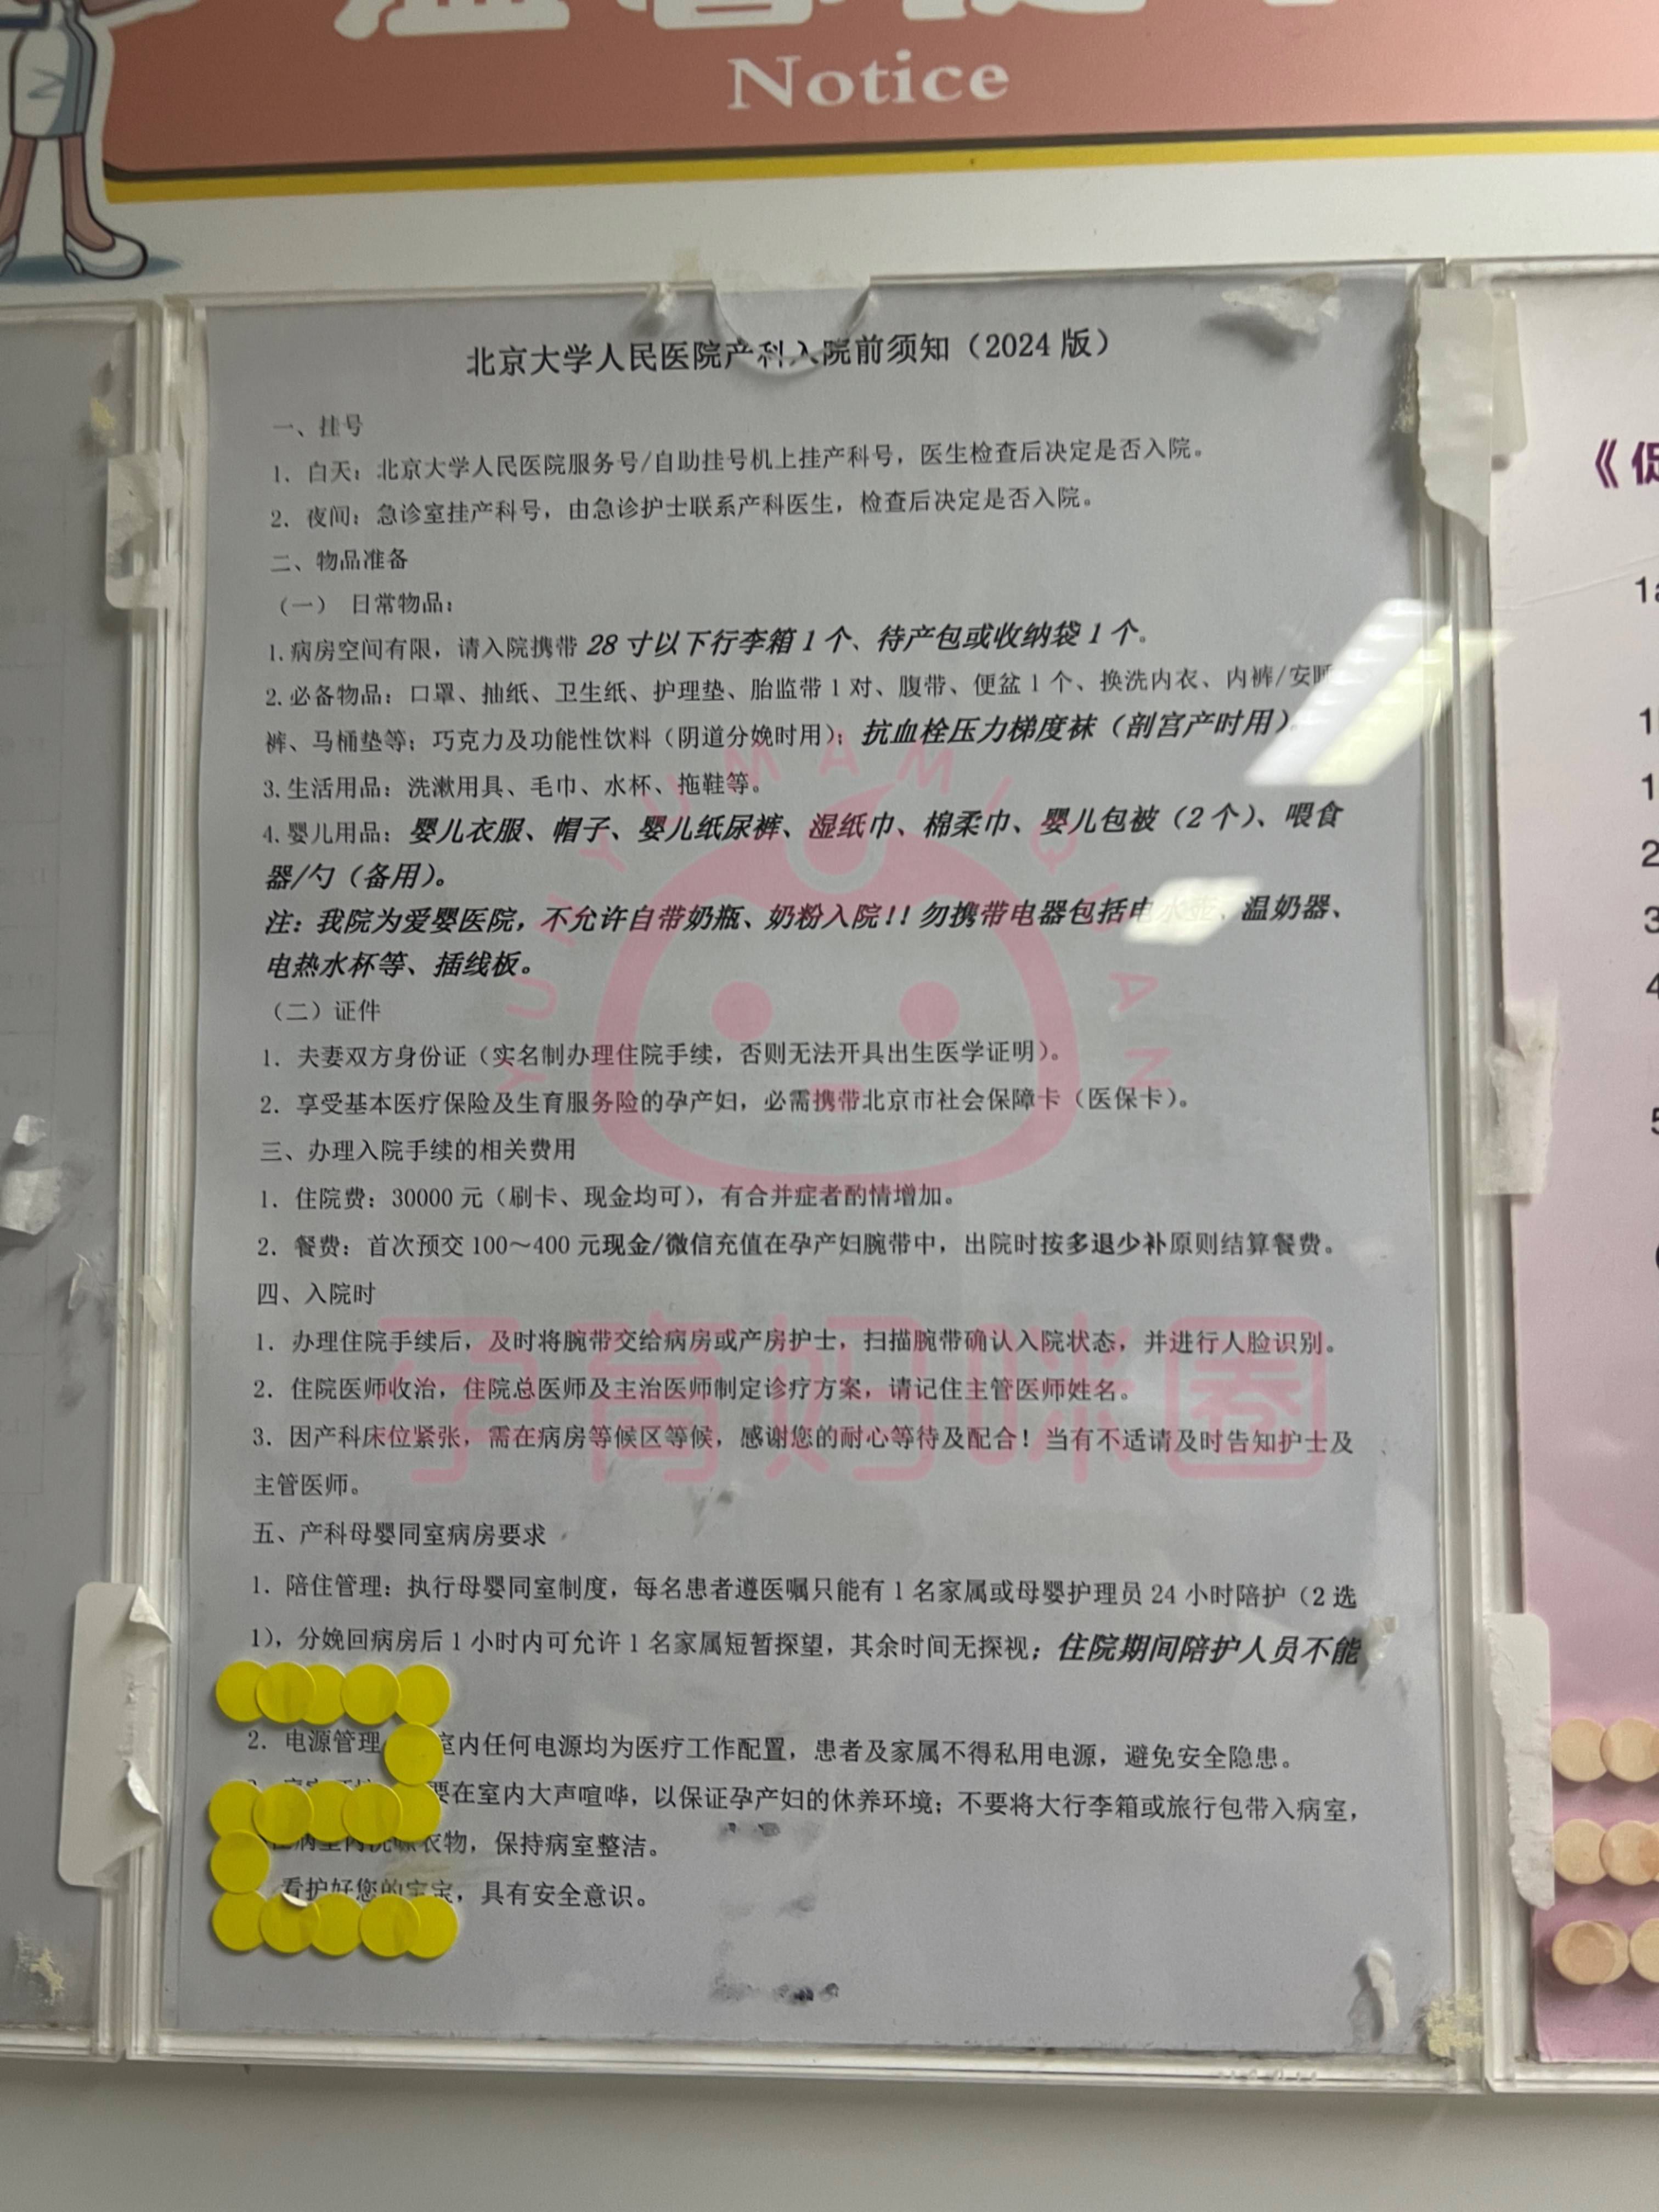 Notice
北京大学人民医院产科入院前须知（2024 版）
一、挂号
1. 白天：北京大学人民医院服务号/自助挂号机上挂产科号，医生检查后决定是否入院。
2. 夜间：急诊室挂产科号，由急诊护士联系产科医生，检查后决定是否入院。
二、物品准备
（一） 日常物品：
1.病房空间有限，请入院携带 28 寸以下行李箱 1 个、待产包或收纳袋 1 个。
2.必备物品：口罩、抽纸、卫生纸、护理垫、胎监带 1 对、腹带、便盆 1 个、换洗内衣、内裤/安睡
裤、马桶垫等；巧克力及功能性饮料（阴道分娩时用）；抗血栓压力梯度袜（剖宫产时用）。
3.生活用品：洗漱用具、毛巾、水杯、拖鞋等。
4.婴儿用品：婴儿衣服、帽子、婴儿纸尿裤、湿纸巾、棉柔巾、婴儿包被（2 个）、喂食
器/勺（备用）。
注：我院为爱婴医院，不允许自带奶瓶、奶粉入院!! 勿携带电器包括电水壶、温奶器、
电热水杯等、插线板。
（二）证件
1. 夫妻双方身份证（实名制办理住院手续，否则无法开具出生医学证明）。
2. 享受基本医疗保险及生育服务险的孕产妇，必需携带北京市社会保障卡（医保卡）。
三、办理入院手续的相关费用
1. 住院费：30000 元（刷卡、现金均可），有合并症者酌情增加。
2. 餐费：首次预交 100～400 元现金/微信充值在孕产妇腕带中，出院时按多退少补原则结算餐费。
四、入院时
1. 办理住院手续后，及时将腕带交给病房或产房护士，扫描腕带确认入院状态，并进行人脸识别。
2. 住院医师收治，住院总医师及主治医师制定诊疗方案，请记住主管医师姓名。
3. 因产科床位紧张，需在病房等候区等候，感谢您的耐心等待及配合！当有不适请及时告知护士及
主管医师。
五、产科母婴同室病房要求
1. 陪住管理：执行母婴同室制度，每名患者遵医嘱只能有 1 名家属或母婴护理员 24 小时陪护（2 选
1），分娩回病房后 1 小时内可允许 1 名家属短暂探望，其余时间无探视；住院期间陪护人员不能
2. 电源管理 室内任何电源均为医疗工作配置，患者及家属不得私用电源，避免安全隐患。
要在室内大声喧哗，以保证孕产妇的休养环境；不要将大行李箱或旅行包带入病室，
衣物，保持病室整洁。
看护好您的宝宝，具有安全意识。
YUNYUMAMIQUAN
孕育妈咪圈
《促
1
2
3
4
5